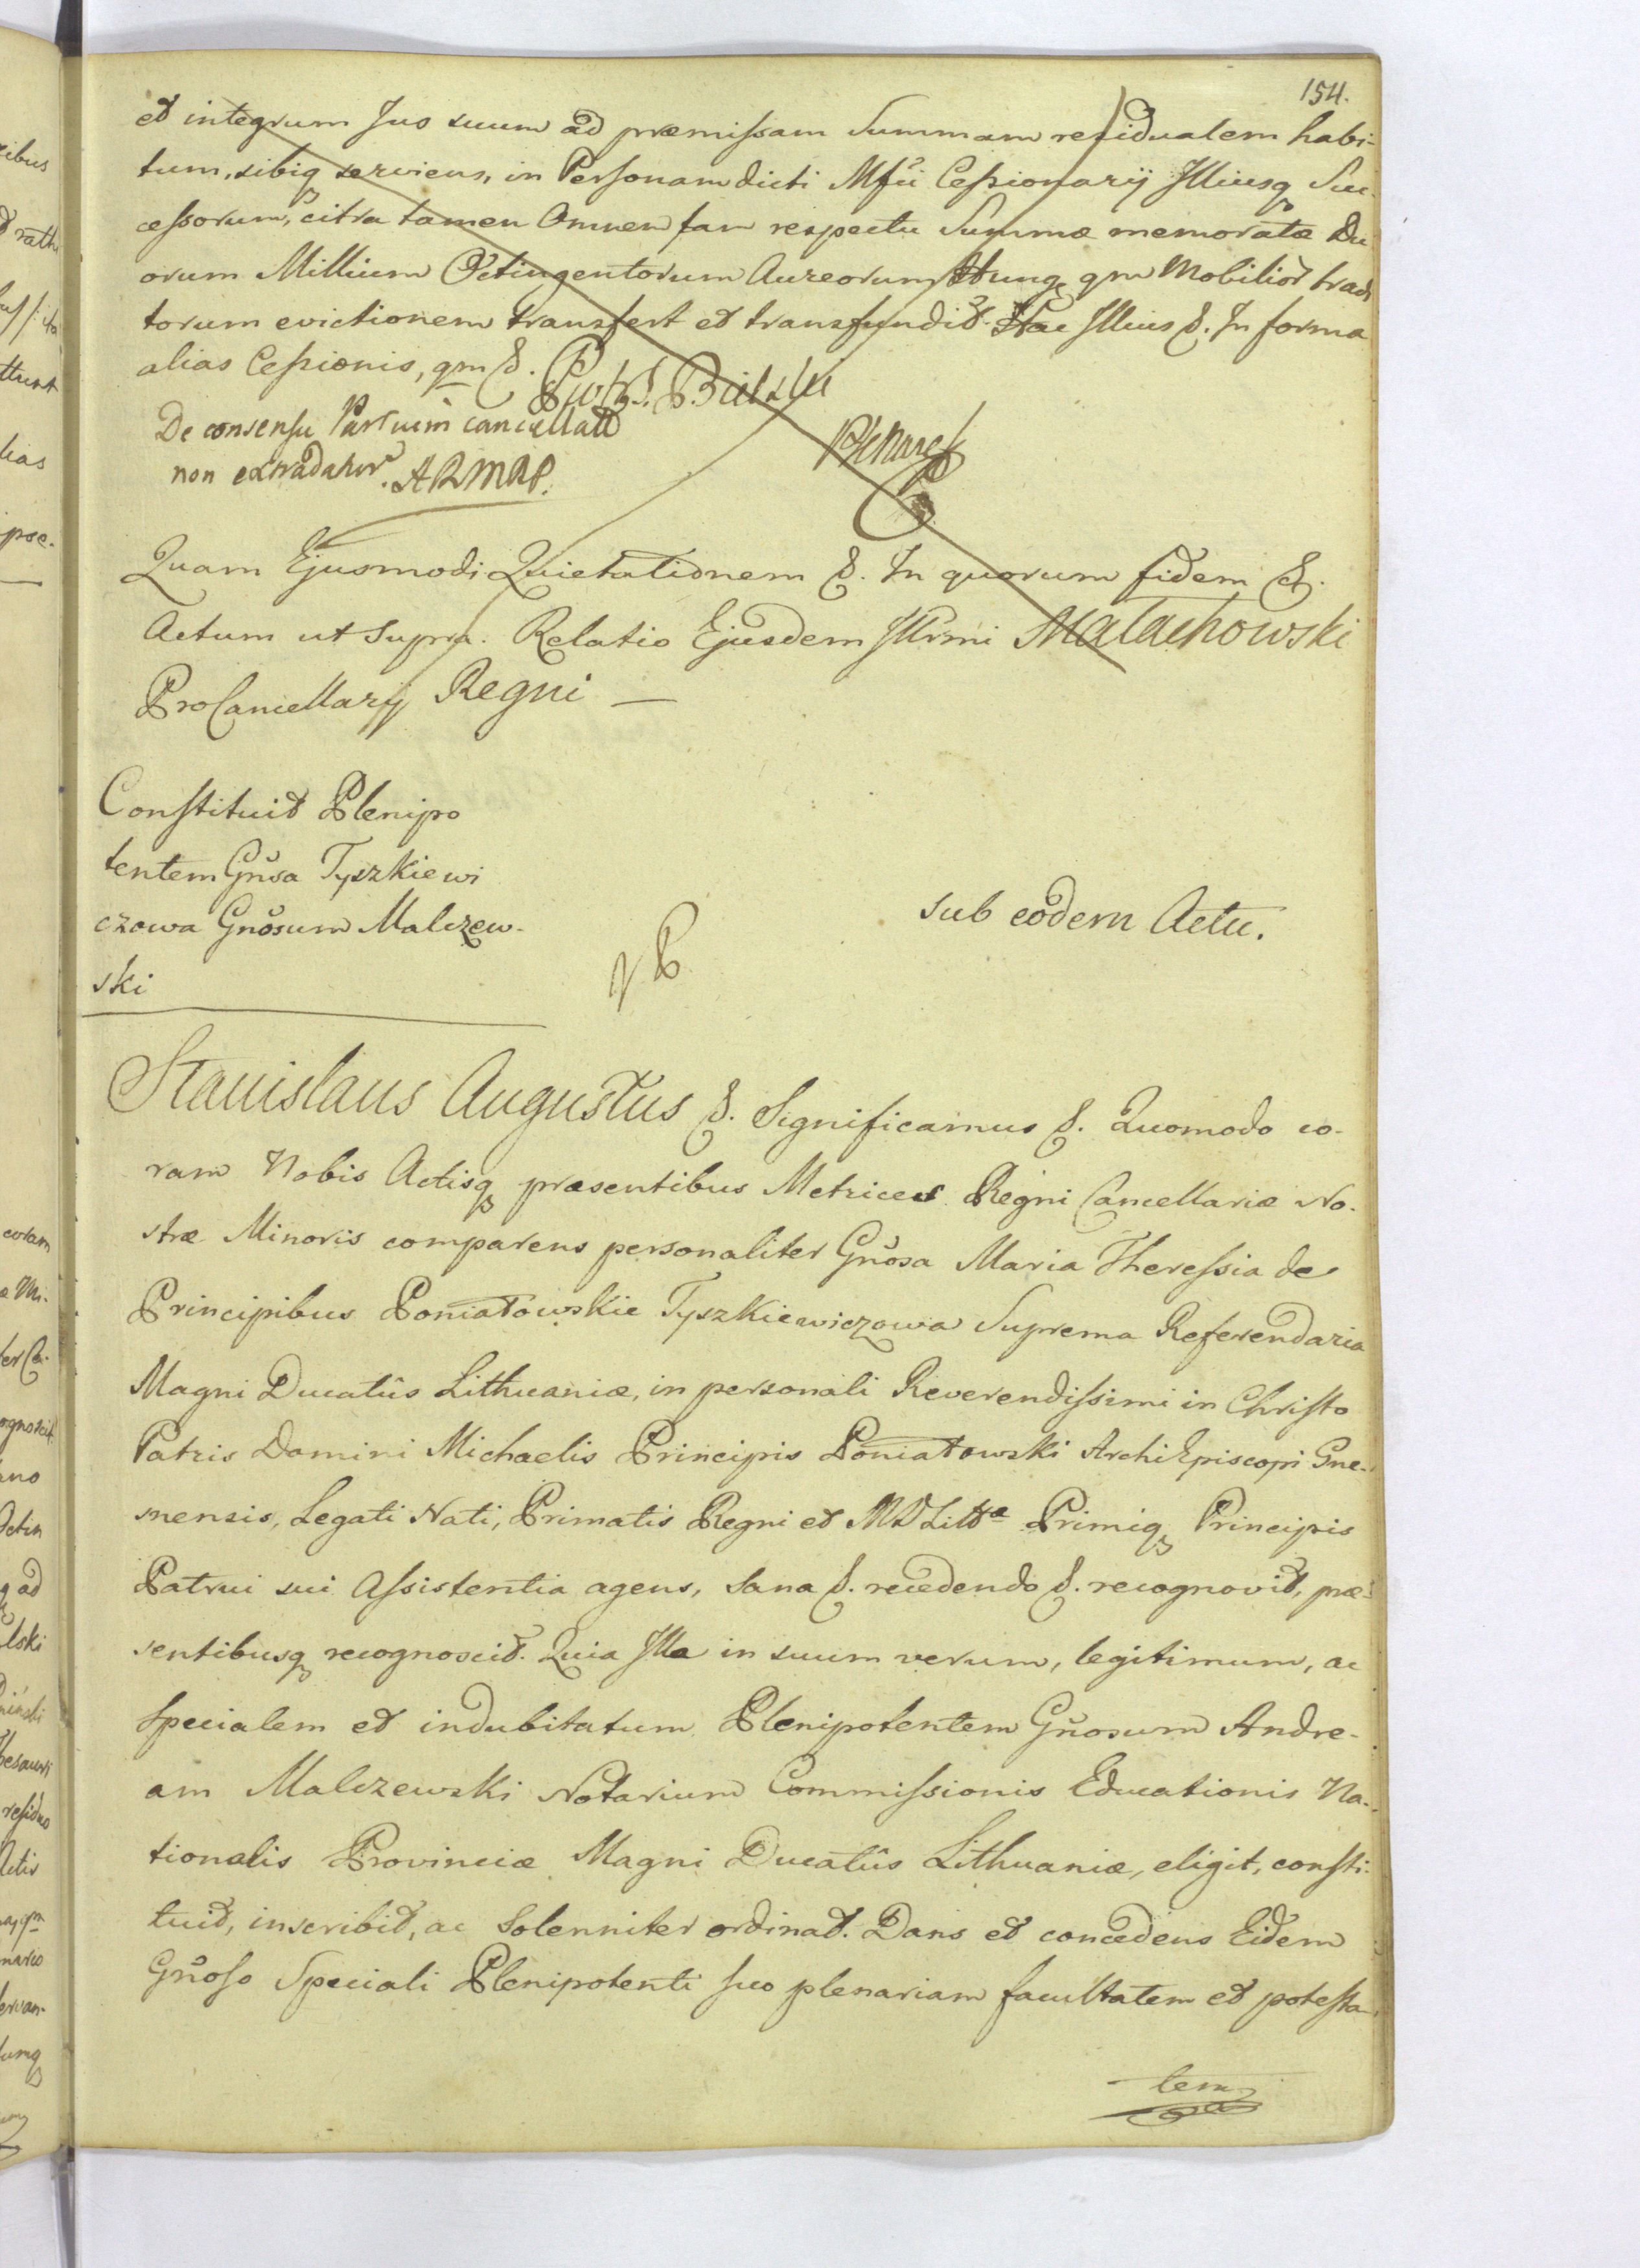 154.
et integrum Jus suum ad præmissam Summam residualem habi-
tum, sibiq serviens, in Personam dicti Mfci Cessionarij Illiusq Suc-
cessorum, citra tamen Omnem tam respectu Summæ memoratæ Du
orum Millium Octingentorum Aureorum Hung. qm Mobiliod tradi
torum evictionem transfert et transfundit. Hac Illius &. In forma
alias Cessionis, qm &.
Piotr S. Bielski
De consensu Partium cancellatt
non extradatur. ARMRP.
Quam Ejusmodi Quietationem &. In quorum fidem &.
Actum ut Supra. Relatio Ejusdem Illrmi Małachowski
ProCancellarij Regni —
Constituit Plenipo
tentem Gnosa Tyszkiewi
czowa Gnosum Malczew-
ski
sub eodem Actu.
Stanislaus Augustus &. Significamus &. Quomodo co-
ram Nobis Actisq præsentibus Metrices Regni Cancellariæ No-
stræ Minoris comparens personaliter Gnosa Maria Theressia de
Principibus Poniatowskie Tyszkiewiczowa Suprema Referendaria
Magni Ducatûs Lithuaniæ, in personali Reverendissimi in Christo
Patris Domini Michaelis Principis Poniatowski ArchiEpiscopi Gne-
snensis, Legati Nati, Primatis Regni et MD Littæ Primiq Principis
Patrui sui Assistentia agens, Sana &. recedendo &. recognovit, præ-
sentibusq recognoscit. Quia Illa in suum verum, legitimum, ac
Specialem et indubitatum Plenipotentem Gnosum Andre-
am Malczewski Notarium Commissionis Educationis Na-
tionalis Provinciæ Magni Ducatûs Lithuaniæ, eligit, consti-
tuit, inscribit, ac Solenniter ordinat. Dans et concedens Eidem
Gnoso Speciali Plenipotenti suo plenariam facultatem et potesta
tem